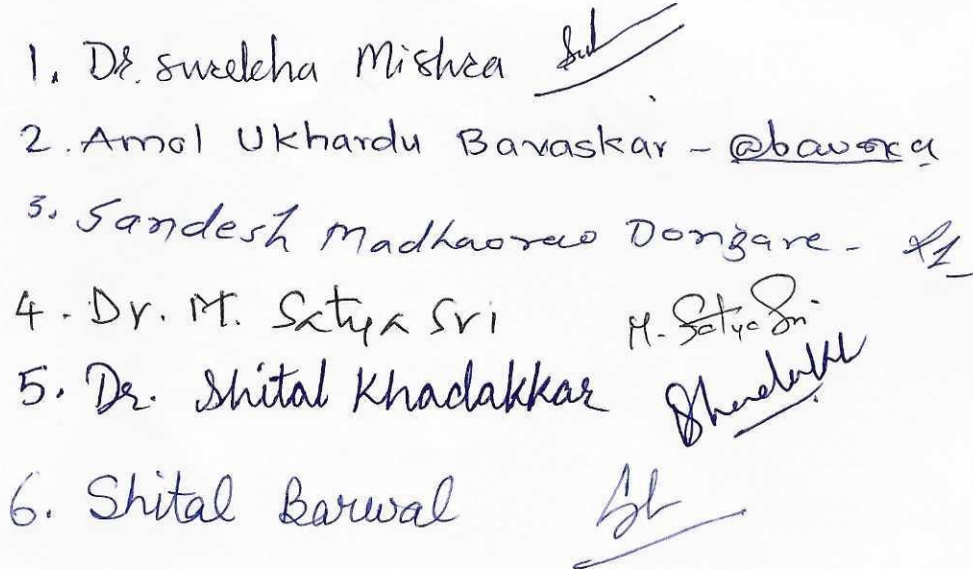 1. Dr. Surekha Mishra
2. Amol Ukhardu Bavaskar -
3. Sandesh Madhaorao Dongare -
4. Dr. M. Satya Sri M. Satya Sri
5. Dr. Shital Khadakkar
6. Shital Barwal